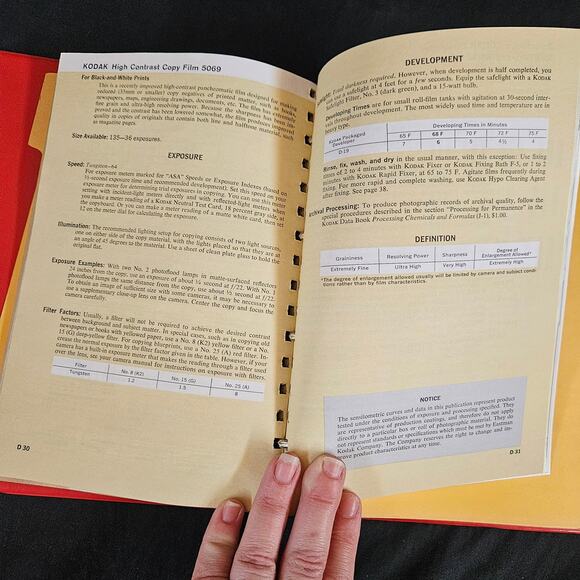 KODAK High Contrast Copy Film 5069
For Black-and-White Prints
This is a recently improved high-contrast panchromatic film designed for making
reduced (35mm or smaller) copy negatives of printed matter, such as books,
newspapers, maps, engineering drawings, documents, etc. The film has
fine grain and ultra-high resolving power. Because the sharpness has been im-
proved and the contrast has been lowered somewhat, the film produces improved
quality in copies of originals that contain both line and halftone material, such
as magazine pages.
Size Available: 135—36 exposures.
EXPOSURE
Speed: Tungsten—64
For exposure meters marked for "ASA" Speeds or Exposure Indexes (based on
½-second exposure time and recommended development). Set this speed on your
exposure meter for determining trial exposures in copying. You can use this meter
setting with incident-light meters directly and with reflected-light meters when
you make a meter reading of a KODAK Neutral Test Card, 18 percent gray side, at
the copyboard. Or you can make a meter reading of a matte white card, then set
12 on the meter dial for calculating the exposure.
Illumination: The recommended lighting setup for copying consists of two light sources,
one on either side of the copy material, with the lights placed so that they are at
an angle of 45 degrees to the material. Use a sheet of clean plate glass to hold the
original flat.
Exposure Examples: With two No. 2 photoflood lamps in matte-surfaced reflectors
24 inches from the copy, use an exposure of about ¼ second at f/22. With No. 1
photoflood lamps the same distance from the copy, use about ½ second at f/22.
To obtain an image of sufficient size with some cameras, it may be necessary to
use a supplementary close-up lens on the camera. Center the copy and focus the
camera carefully.
Filter Factors: Usually, a filter will not be required to achieve the desired contrast
between background and subject matter. In special cases, such as in copying old
newspapers or books with yellowed paper, use a No. 8 (K2) yellow filter or a No.
15 (G) deep-yellow filter. For copying blueprints, use a No. 25 (A) red filter. In-
crease the normal exposure by the filter factor given in the table. However, if your
camera has a built-in exposure meter that makes the reading through a filter used
over the lens, see your camera manual for instructions on exposure with filters.
Filter No. 8 (K2) No. 15 (G) No. 25 (A)
Tungsten 1.2 1.5 8
D 30
DEVELOPMENT
Total darkness required. However, when development is half completed, you
can use a safelight at 4 feet for a few seconds. Equip the safelight with a KODAK
Safelight Filter, No. 3 (dark green), and a 15-watt bulb.
Developing Times are for small roll-film tanks with agitation at 30-second inter-
vals throughout development. The most widely used time and temperature are in
heavy type.
KODAK Packaged Developer Developing Times in Minutes
65 F 68 F 70 F 72 F 75 F
D-19 7 6 5 4½ 4
Rinse, fix, wash, and dry in the usual manner, with this exception: Use fixing
times of 2 to 4 minutes with KODAK Fixer or KODAK Fixing Bath F-5, or 1 to 2
minutes with KODAK Rapid Fixer, at 65 to 75 F. Agitate films frequently during
fixing. For more rapid and complete washing, use KODAK Hypo Clearing Agent
after fixing. See page 38.
Archival Processing: To produce photographic records of archival quality, follow the
special procedures described in the section "Processing for Permanence" in the
KODAK Data Book Processing Chemicals and Formulas (J-1), $1.00.
DEFINITION
Graininess Resolving Power Sharpness Degree of Enlargement Allowed*
Extremely Fine Ultra High Very High Extremely High
*The degree of enlargement allowed usually will be limited by camera and subject condi-
tions rather than by film characteristics.
NOTICE
The sensitometric curves and data in this publication represent product
tested under the conditions of exposure and processing specified. They
are representative of production coatings, and therefore do not apply
directly to a particular box or roll of photographic material. They do
not represent standards or specifications which must be met by Eastman
Kodak Company. The Company reserves the right to change and im-
prove product characteristics at any time.
D 31